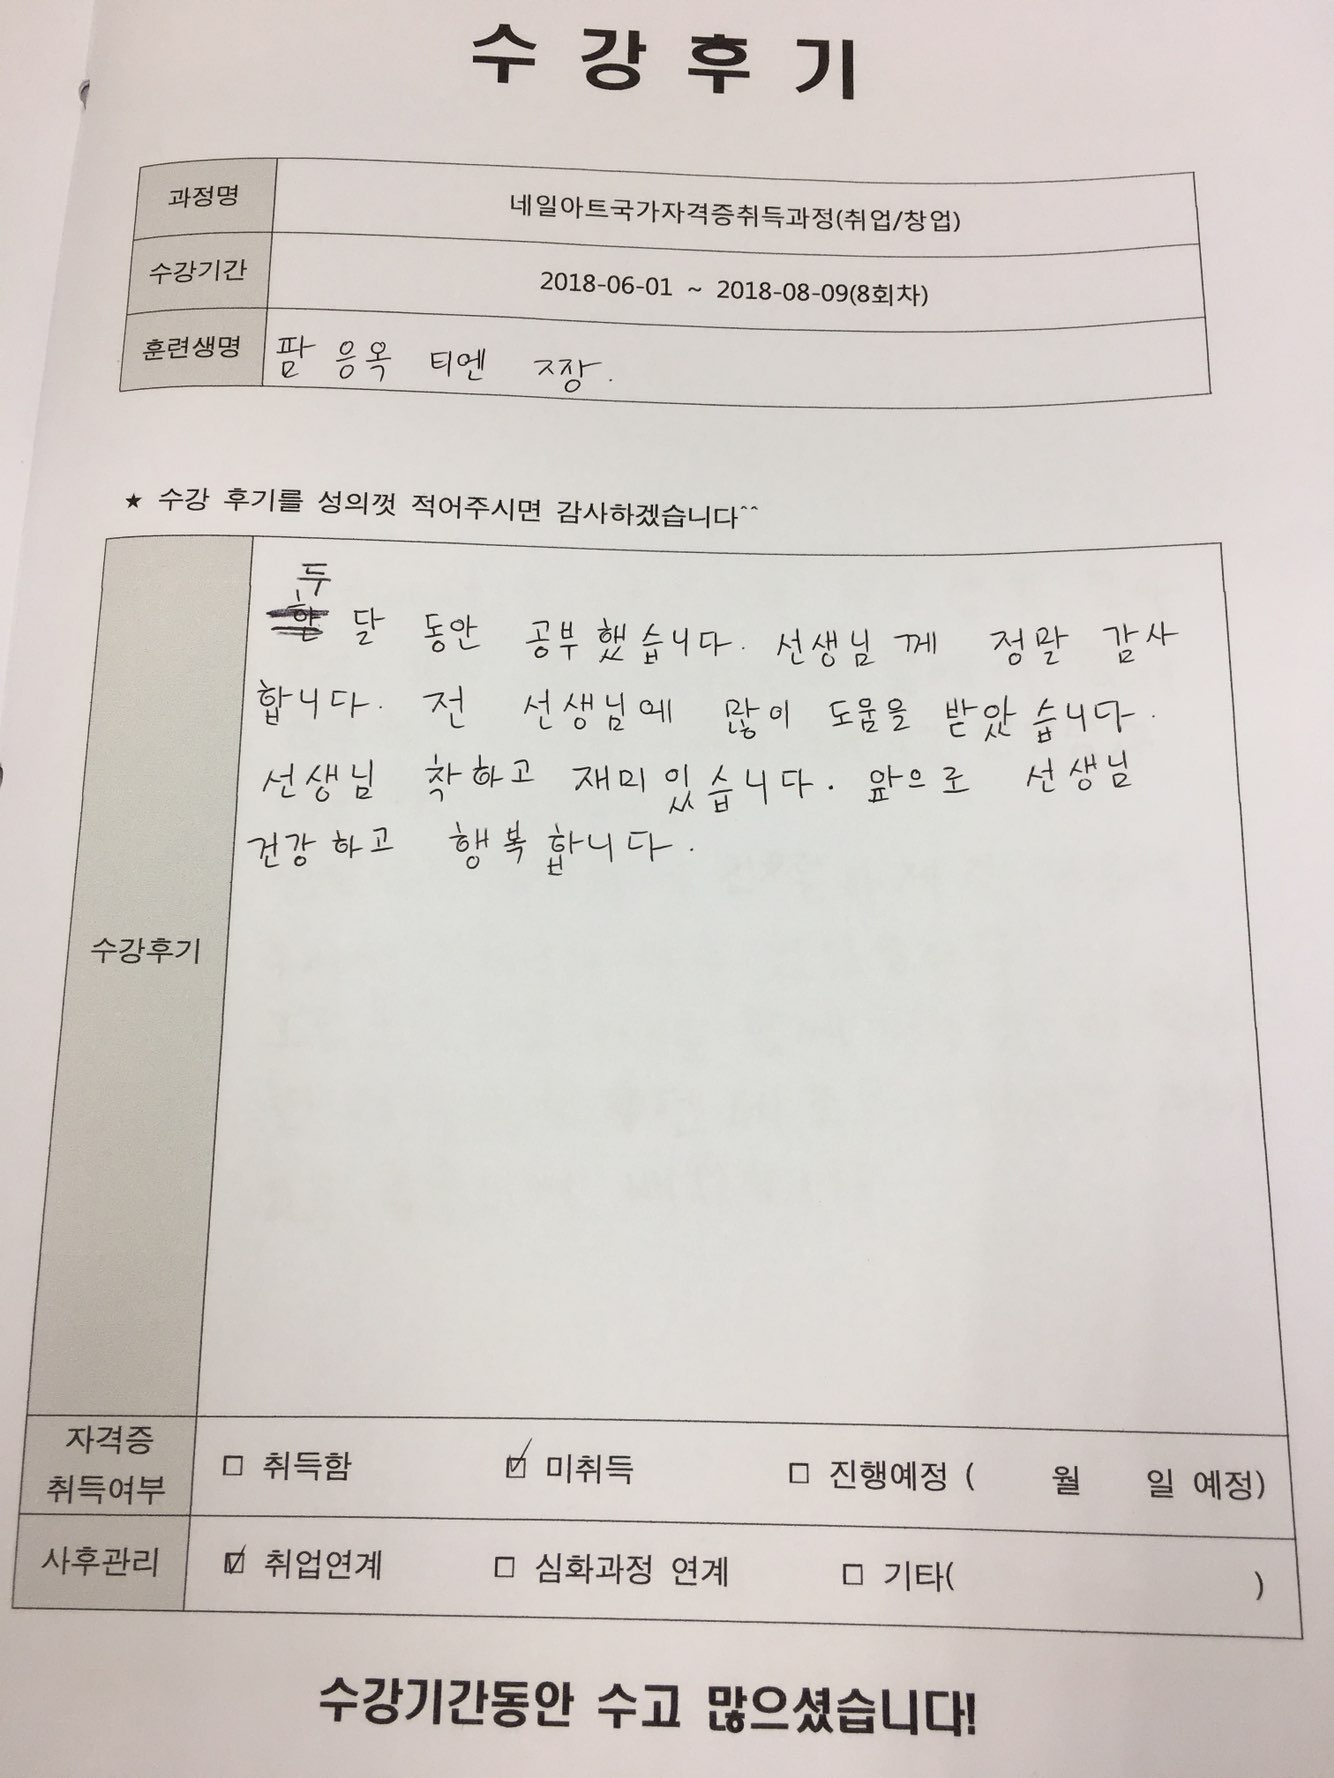 수강후기
과정명 네일아트국가자격증취득과정(취업/창업)
수강기간 2018-06-01 ~ 2018-08-09(8회차)
훈련생명 팜 응옥 티엔 짱.
★ 수강 후기를 성의껏 적어주시면 감사하겠습니다^^
두
한 달 동안 공부했습니다. 선생님께 정말 감사
합니다. 전 선생님에 많이 도움을 받았습니다.
선생님 착하고 재미있습니다. 앞으로 선생님
건강하고 행복합니다.
수강후기
자격증
취득여부
□ 취득함 ☑ 미취득 □ 진행예정 ( 월 일 예정)
사후관리 ☑ 취업연계 □ 심화과정 연계 □ 기타( )
수강기간동안 수고 많으셨습니다!